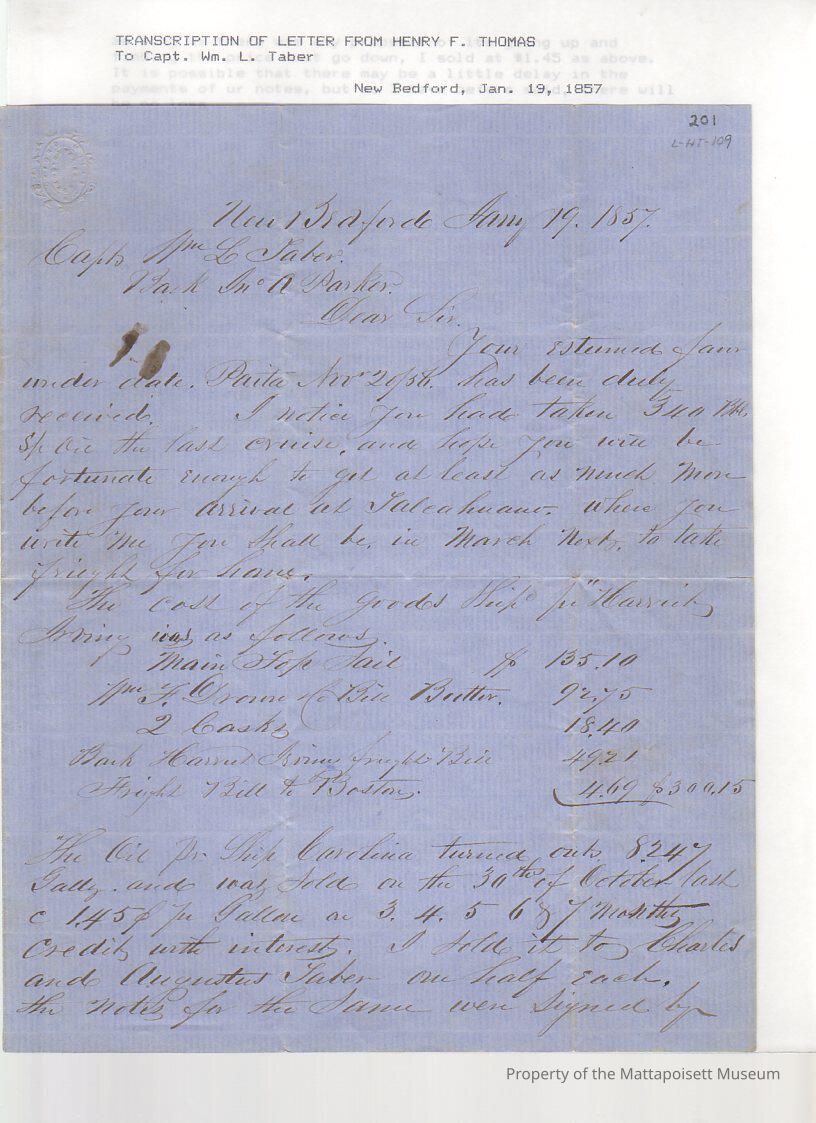 TRANSCRIPTION OF LETTER FROM HENRY F. THOMAS
To Capt. Wm. L. Taber
go down, I sold at $1.45 as above.
It is possible that there may be a little delay in the
payments of ur notes, but
New Bedford, Jan. 19, 1857
201
L-HT-109
New Bedford Jany 19. 1857.
Capt Wm L Taber.
Bark Jno A Parker.
Dear Sir.
Your esteemed favr
under date. Paita Novr 20/56. has been duly
received. I notice you had taken 340 Bbls
Sp Oil the last cruise, and hope you will be
fortunate enough to get at least as much more
before your arrival at Talcahuano. where you
write me you shall be, in March next, to take
freight for home.
The cost of the goods Shipd pr "Harriet
Irving was as follows.
Main Top Sail $ 135.10
Wm F. Drown Co Bill Butter. 92.75
2 Casks 18.40
Bark Harriet Irving freight Bill 49.21
Freight Bill to Boston. 4.69 $300.15
The Oil pr Ship Carolina turned out 8247
Galls. and was sold on the 30th of October last
c 1.45¢ pr Gallon on 3. 4. 5 6 & 7 months
credit with interest. I sold it to Charles
and Augustus Taber one half each.
the notes for the same were signed by
Property of the Mattapoisett Museum